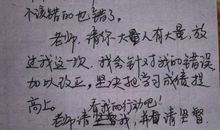 不该错的也错了。
老师,请你大量人有大量,放
过我这一次,我会针对我的错误
加以改正,坚决把学习成绩提
高上。看我的行动吧!
老师请监督我,并有请监督。